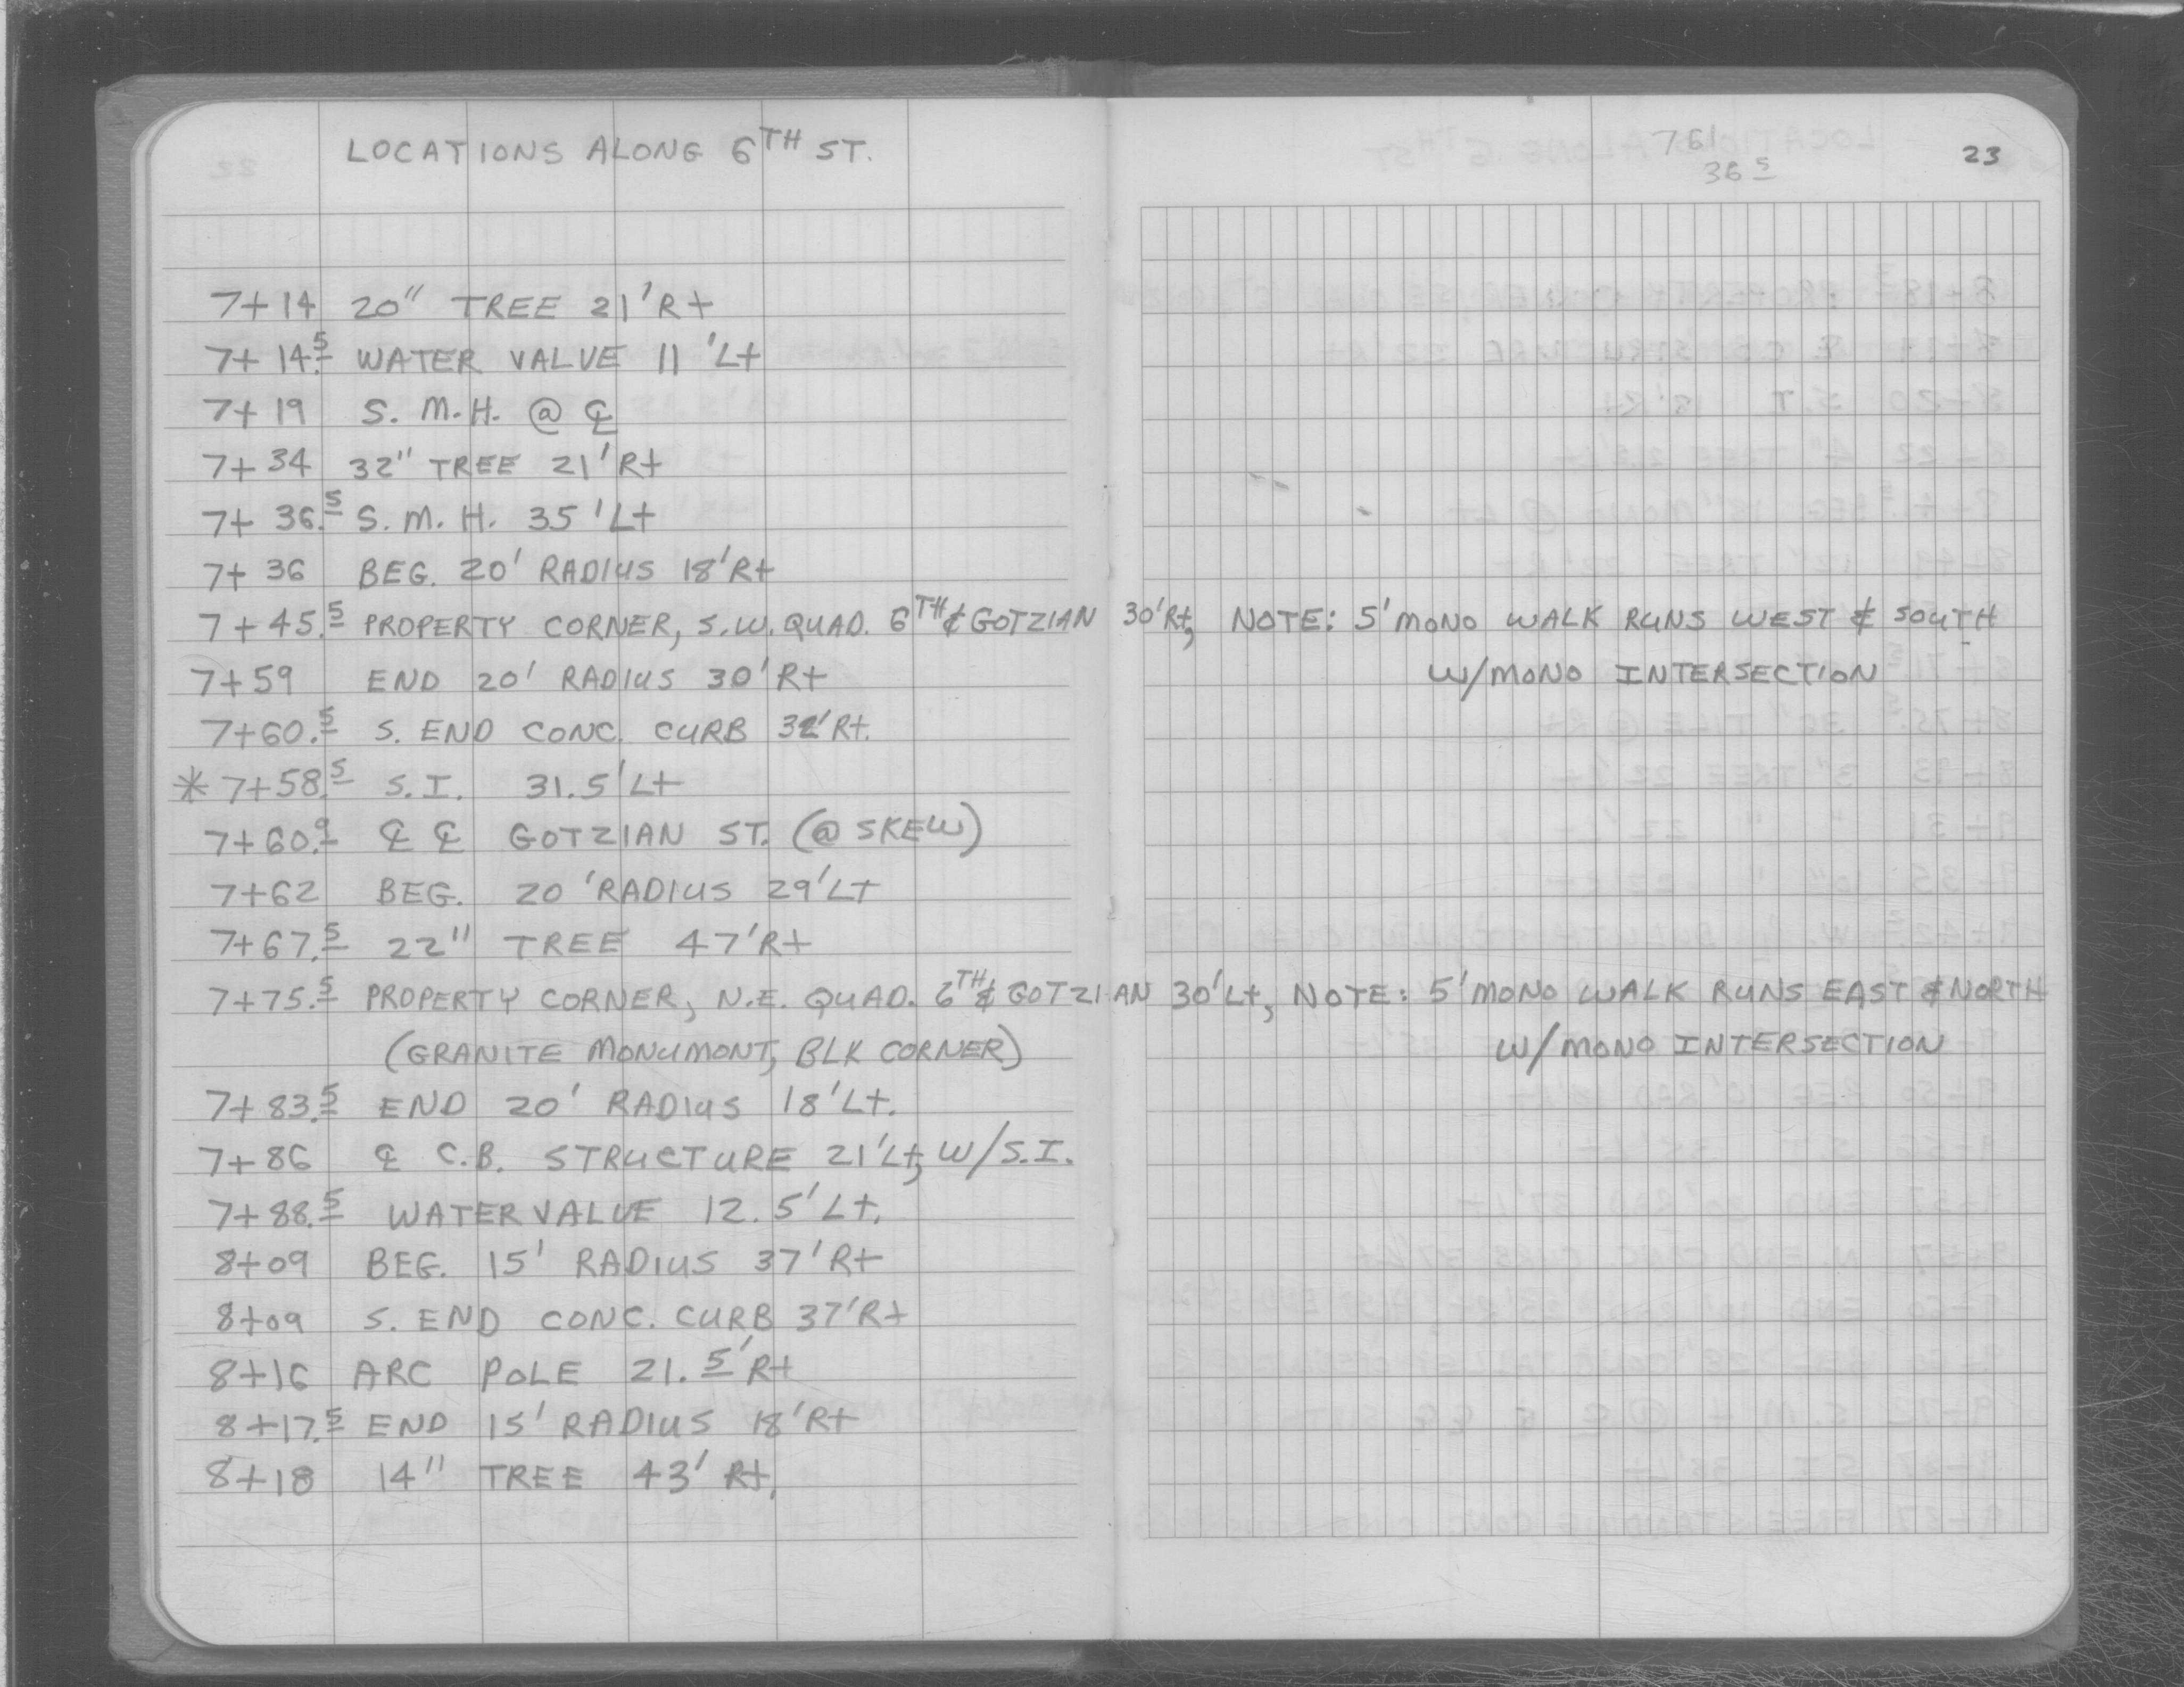 LOCATIONS ALONG 6TH ST.
761
36 5
23
7+14 20" TREE 21'Rt
7+14.5 WATER VALVE 11'Lt
7+19 S.M.H. @ ℄
7+34 32" TREE 21'Rt
7+36.5 S.M.H. 35'Lt
7+36 BEG. 20' RADIUS 18'Rt
7+45.5 PROPERTY CORNER, S.W. QUAD. 6TH & GOTZIAN 30'Rt, NOTE: 5' MONO WALK RUNS WEST & SOUTH
W/MONO INTERSECTION
7+59 END 20' RADIUS 30'Rt
7+60.5 S. END CONC. CURB 32'Rt.
* 7+58.5 S.I. 31.5'Lt
7+60.9 ℄ ℄ GOTZIAN ST. (@ SKEW)
7+62 BEG. 20' RADIUS 29'Lt
7+67.5 22" TREE 47'Rt
7+75.5 PROPERTY CORNER, N.E. QUAD. 6TH & GOTZIAN 30'Lt, NOTE: 5' MONO WALK RUNS EAST & NORTH
(GRANITE MONUMONT, BLK CORNER) W/MONO INTERSECTION
7+83.5 END 20' RADIUS 18'Lt.
7+86 ℄ C.B. STRUCTURE 21'Lt, W/S.I.
7+88.5 WATER VALVE 12.5'Lt.
8+09 BEG. 15' RADIUS 37'Rt
8+09 S. END CONC. CURB 37'Rt
8+16 ARC POLE 21.5'Rt
8+17.5 END 15' RADIUS 18'Rt
8+18 14" TREE 43' Rt.